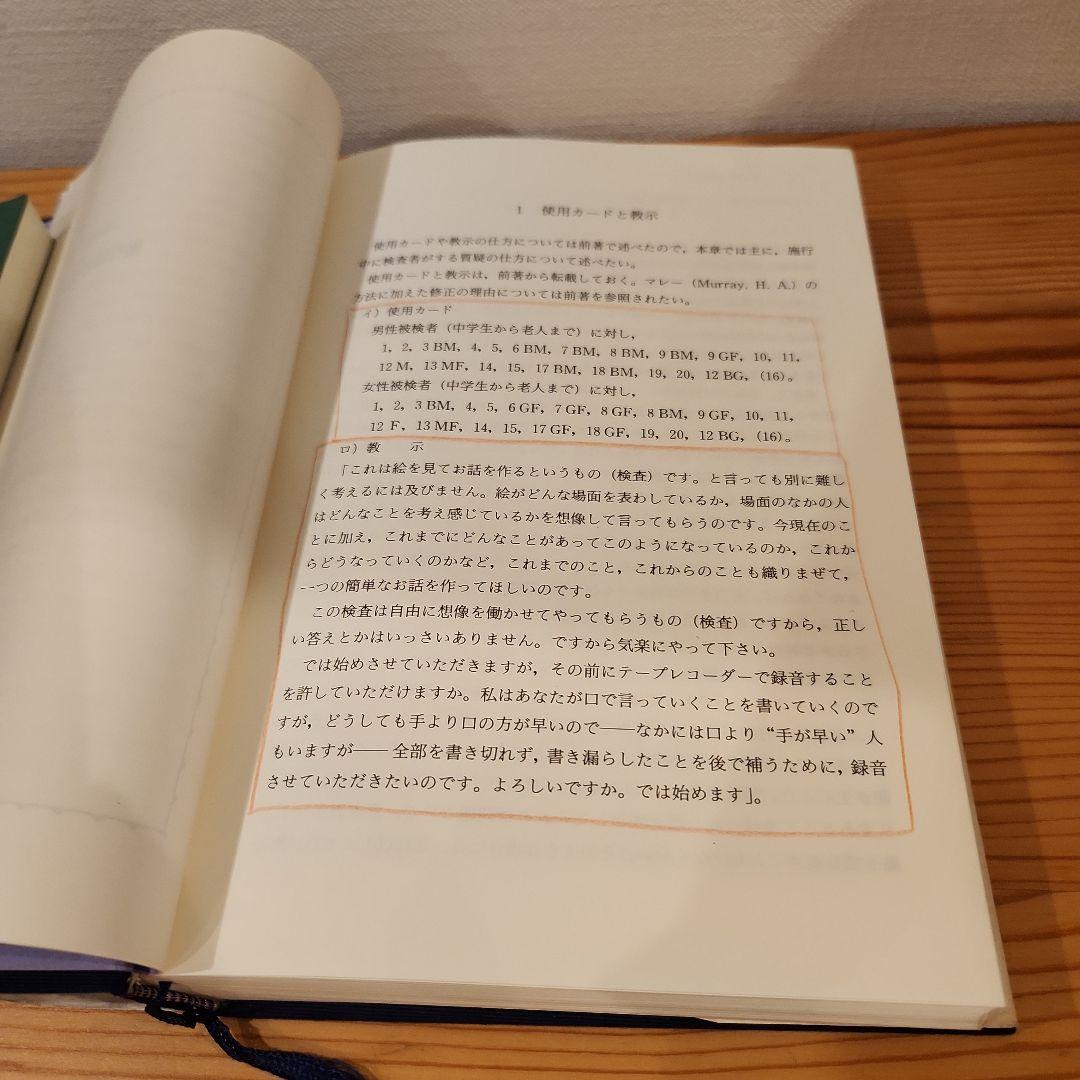 1 使用カードと教示
使用カードや教示の仕方については前著で述べたので，本章では主に，施行
中に検査者がする質疑の仕方について述べたい。
使用カードと教示は，前著から転載しておく。マレー（Murray, H. A.）の
方法に加えた修正の理由については前著を参照されたい。
イ）使用カード
男性被検者（中学生から老人まで）に対し，
1，2，3 BM，4，5，6 BM，7 BM，8 BM，9 BM，9 GF，10，11，
12 M，13 MF，14，15，17 BM，18 BM，19，20，12 BG，(16)。
女性被検者（中学生から老人まで）に対し，
1，2，3 BM，4，5，6 GF，7 GF，8 GF，8 BM，9 GF，10，11，
12 F，13 MF，14，15，17 GF，18 GF，19，20，12 BG，(16)。
ロ）教　示
「これは絵を見てお話を作るというもの（検査）です。と言っても別に難し
く考えるには及びません。絵がどんな場面を表わしているか，場面のなかの人
はどんなことを考え感じているかを想像して言ってもらうのです。今現在のこ
とに加え，これまでにどんなことがあってこのようになっているのか，これか
らどうなっていくのかなど，これまでのこと，これからのことも織りまぜて，
一つの簡単なお話を作ってほしいのです。
この検査は自由に想像を働かせてやってもらうもの（検査）ですから，正し
い答えとかはいっさいありません。ですから気楽にやって下さい。
では始めさせていただきますが，その前にテープレコーダーで録音すること
を許していただけますか。私はあなたが口で言っていくことを書いていくので
すが，どうしても手より口の方が早いので――なかには口より“手が早い”人
もいますが――全部を書き切れず，書き漏らしたことを後で補うために，録音
させていただきたいのです。よろしいですか。では始めます」。